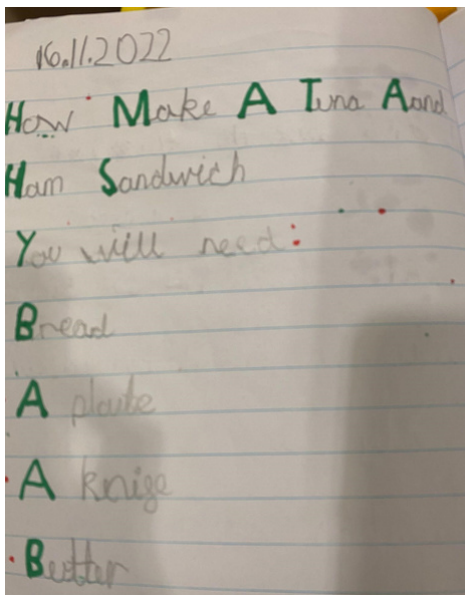 16.11.2022
How Make A Tuna Aand
Ham Sandwich
You will need:
Bread
A plaute
A knige
Butter